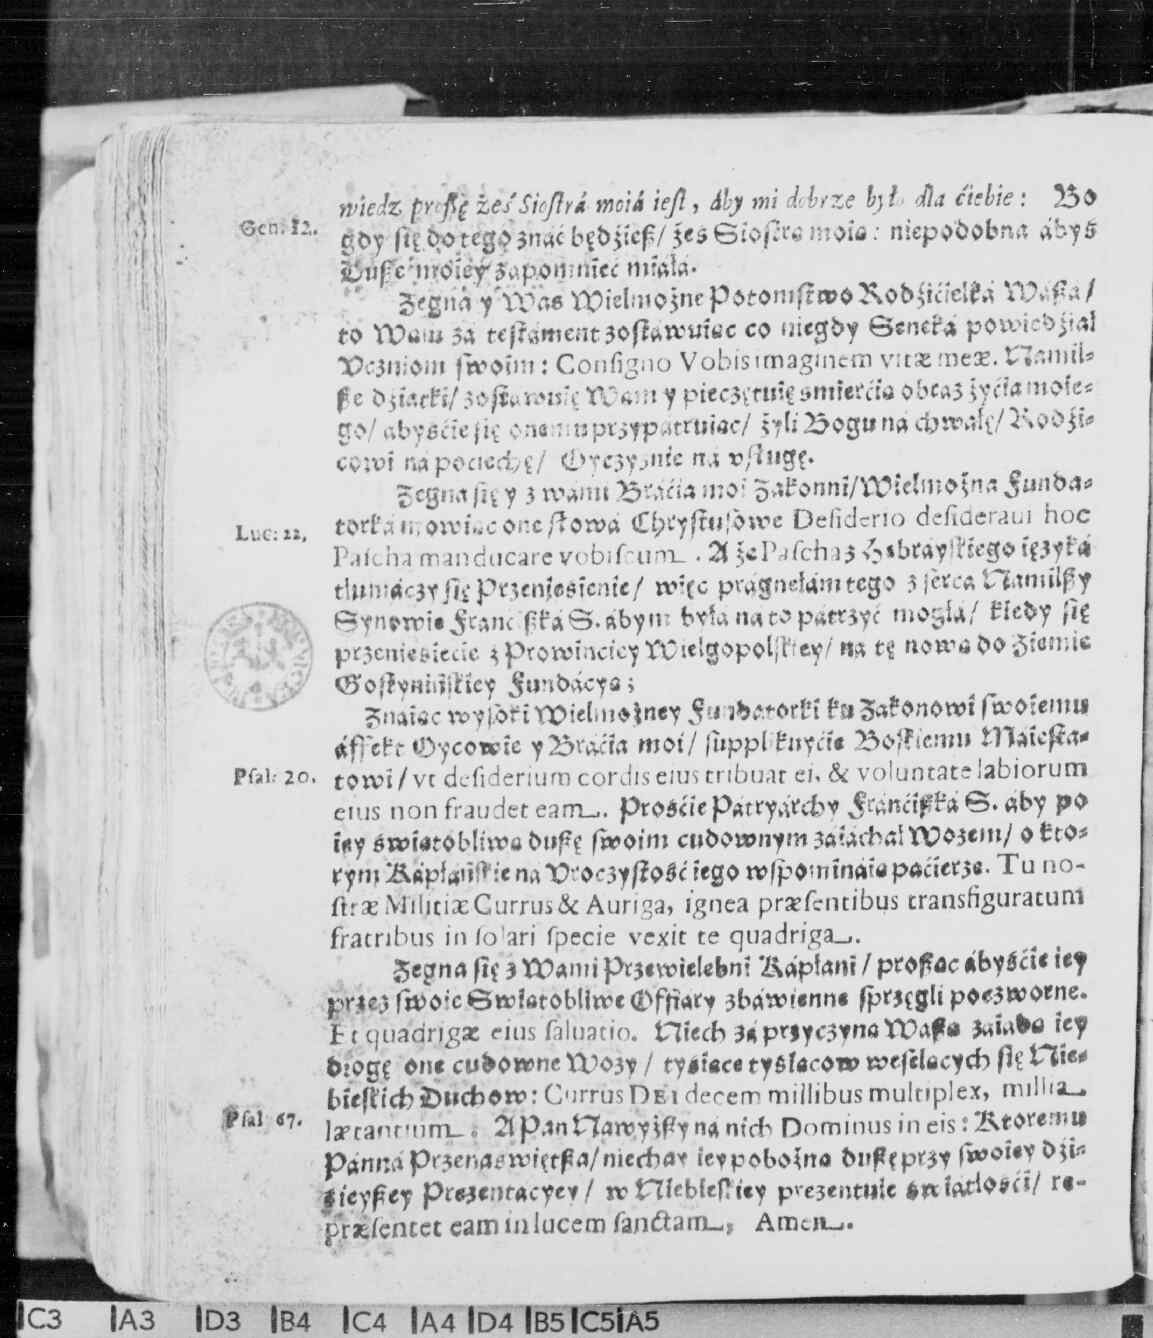 wiedz proszę żeś Siostrá moiá iest, áby mi dobrze było dla ćiebie: Bo
Gen: 12.
gdy się do tego znáć będźiesz/ żeś Siostrą moią: niepodobna ábyś
Duszę moiey zapomnieć miáłá.
Zegna y Was Wielmożne Potomstwo Rodźićielká Wászá/
to Wam zá testament zostáwuiąc co niegdy Seneká powiedźiał
Vczniom swoim: Consigno Vobis imaginem vitæ meæ. Namil-
sze dźiatki/ zostáwuię Wam y pieczętuię śmierćią obraz żyćia moie-
go/ abyśćie się onemu przypátruiąc/ żyli Bogu ná chwałę/ Rodźi-
cowi ná poćiechę/ Oyczyznie ná vsługę.
Zegna się y z wámi Bráćia moi Zakonni/ Wielmożna Funda-
torká mowiąc one słowá Chrystusowe Desiderio desideraui hoc
Luc: 22,
Pascha manducare vobiscum. A że Pascha z Hebrayskiego ięzyká
tłumáczy się Przeniesienie/ więc prágnęłám tego z serca Namilszy
Synowie Franciszká S. ábym byłá ná to pátrzyć mogłá/ kiedy się
przenieśiećie z Prowinciey Wielgopolskiey/ ná tę nową do Ziemie
Gostynińskiey Fundácyą;
Znáiąc wysoki Wielmożney Fundatorki ku Zakonowi swoiemu
áffekt Oycowie y Bráćia moi/ supplikuyćie Boskiemu Máiesta-
Psal: 20.
towi/ vt desiderium cordis eius tribuat ei, & voluntate labiorum
eius non fraudet eam. Prośćie Pátryárchy Fránćiszká S. áby po
iey świątobliwą duszę swoim cudownym záiáchał Wozem/ o kto-
rym Kápłáńskie ná Vroczystość iego wspomináią paćierze. Tu no-
stræ Militiæ Currus & Auriga, ignea præsentibus transfiguratum
fratribus in solari specie vexit te quadriga.
Zegna się z Wámi Przewielebni Kápłani/ prosząc ábyśćie iey
przez swoie Swiątobliwe Offiáry zbáwienne sprzęgli poczworne.
Et quadrigæ eius saluatio. Niech zá przyczyną Wászą záiádą iey
drogę one cudowne Wozy/ tyśiące tyśiącow weselących się Nie-
bieskich Duchow: Currus DEI decem millibus multiplex, millia
Psal 67.
lætantium. A Pan Nawyższy ná nich Dominus in eis: Ktoremu
Pánná Przenaświętsza/ niechay iey pobożną duszę przy swoiey dźi-
śieyszey Prezentácyey/ w Niebieskiey prezentuie świátłośći/ re-
præsentet eam in lucem sanctam, Amen.
C3 A3 D3 B4 C4 A4 D4 B5 C5 A5